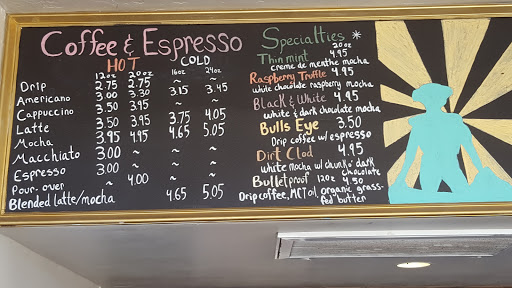 Coffee & Espresso
HOT COLD
12oz 20oz 16oz 24oz
Drip 2.75 2.75 ~ ~
Americano 3.00 3.30 3.15 3.45
Cappuccino 3.50 3.95 ~ ~
Latte 3.50 3.95 3.75 4.05
Mocha 3.95 4.95 4.65 5.05
Macchiato 3.00 ~ ~ ~
Espresso 3.00 ~ ~ ~
Pour-over ~ 4.00 ~ ~
Blended latte/mocha 4.65 5.05
Specialties *
20oz
Thin mint 4.95
creme de menthe mocha
Raspberry Truffle 4.95
white chocolate raspberry mocha
Black & White 4.95
white & dark chocolate mocha
Bulls Eye 3.50
Drip coffee w/ espresso
Dirt Clod 4.95
white mocha w/ chunko' dark
chocolate
Bulletproof 12oz 4.50
Drip coffee, MCT oil, organic grass-
fed butter